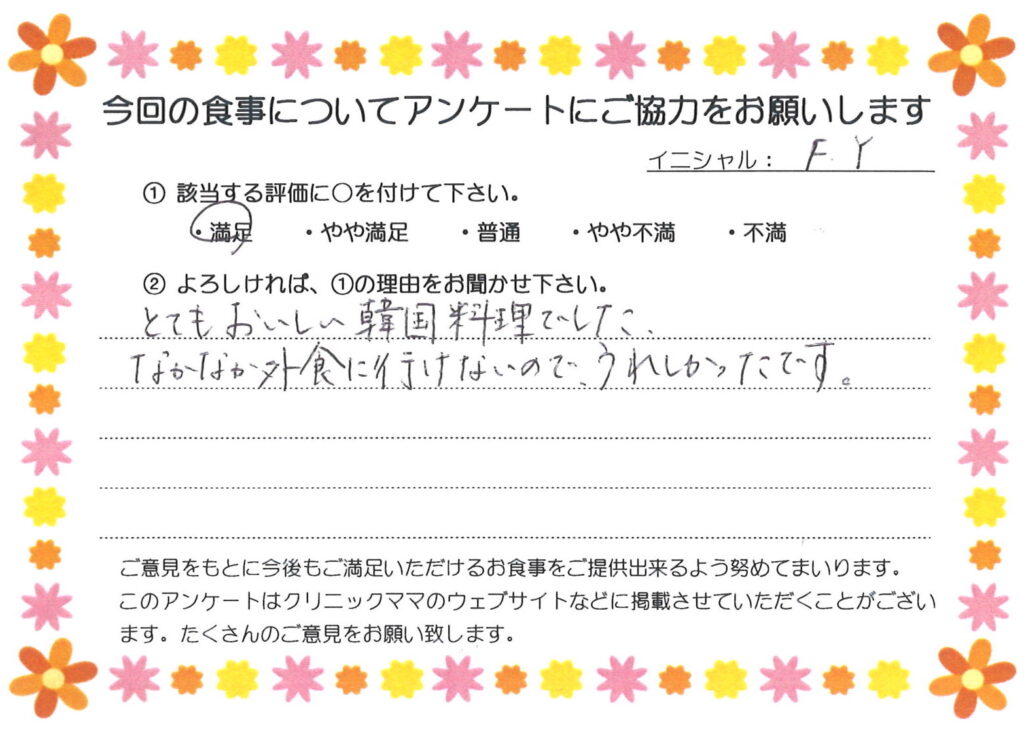 今回の食事についてアンケートにご協力をお願いします
イニシャル： F.Y
① 該当する評価に〇を付けて下さい。
・満足　・やや満足　・普通　・やや不満　・不満
② よろしければ、①の理由をお聞かせ下さい。
とてもおいしい韓国料理でした、
なかなか外食に行けないので、うれしかったです。
ご意見をもとに今後もご満足いただけるお食事をご提供出来るよう努めてまいります。
このアンケートはクリニックママのウェブサイトなどに掲載させていただくことがござい
ます。たくさんのご意見をお願い致します。